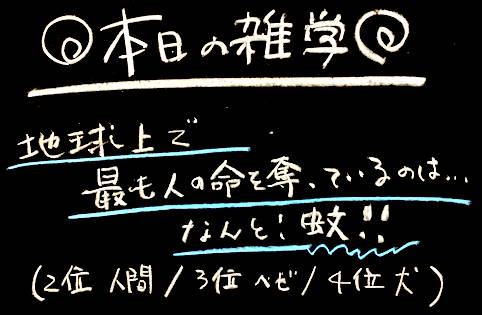 本日の雑学
地球上で
最も人の命を奪っているのは...
なんと！蚊!!
(2位 人間 / 3位 ヘビ / 4位 犬)